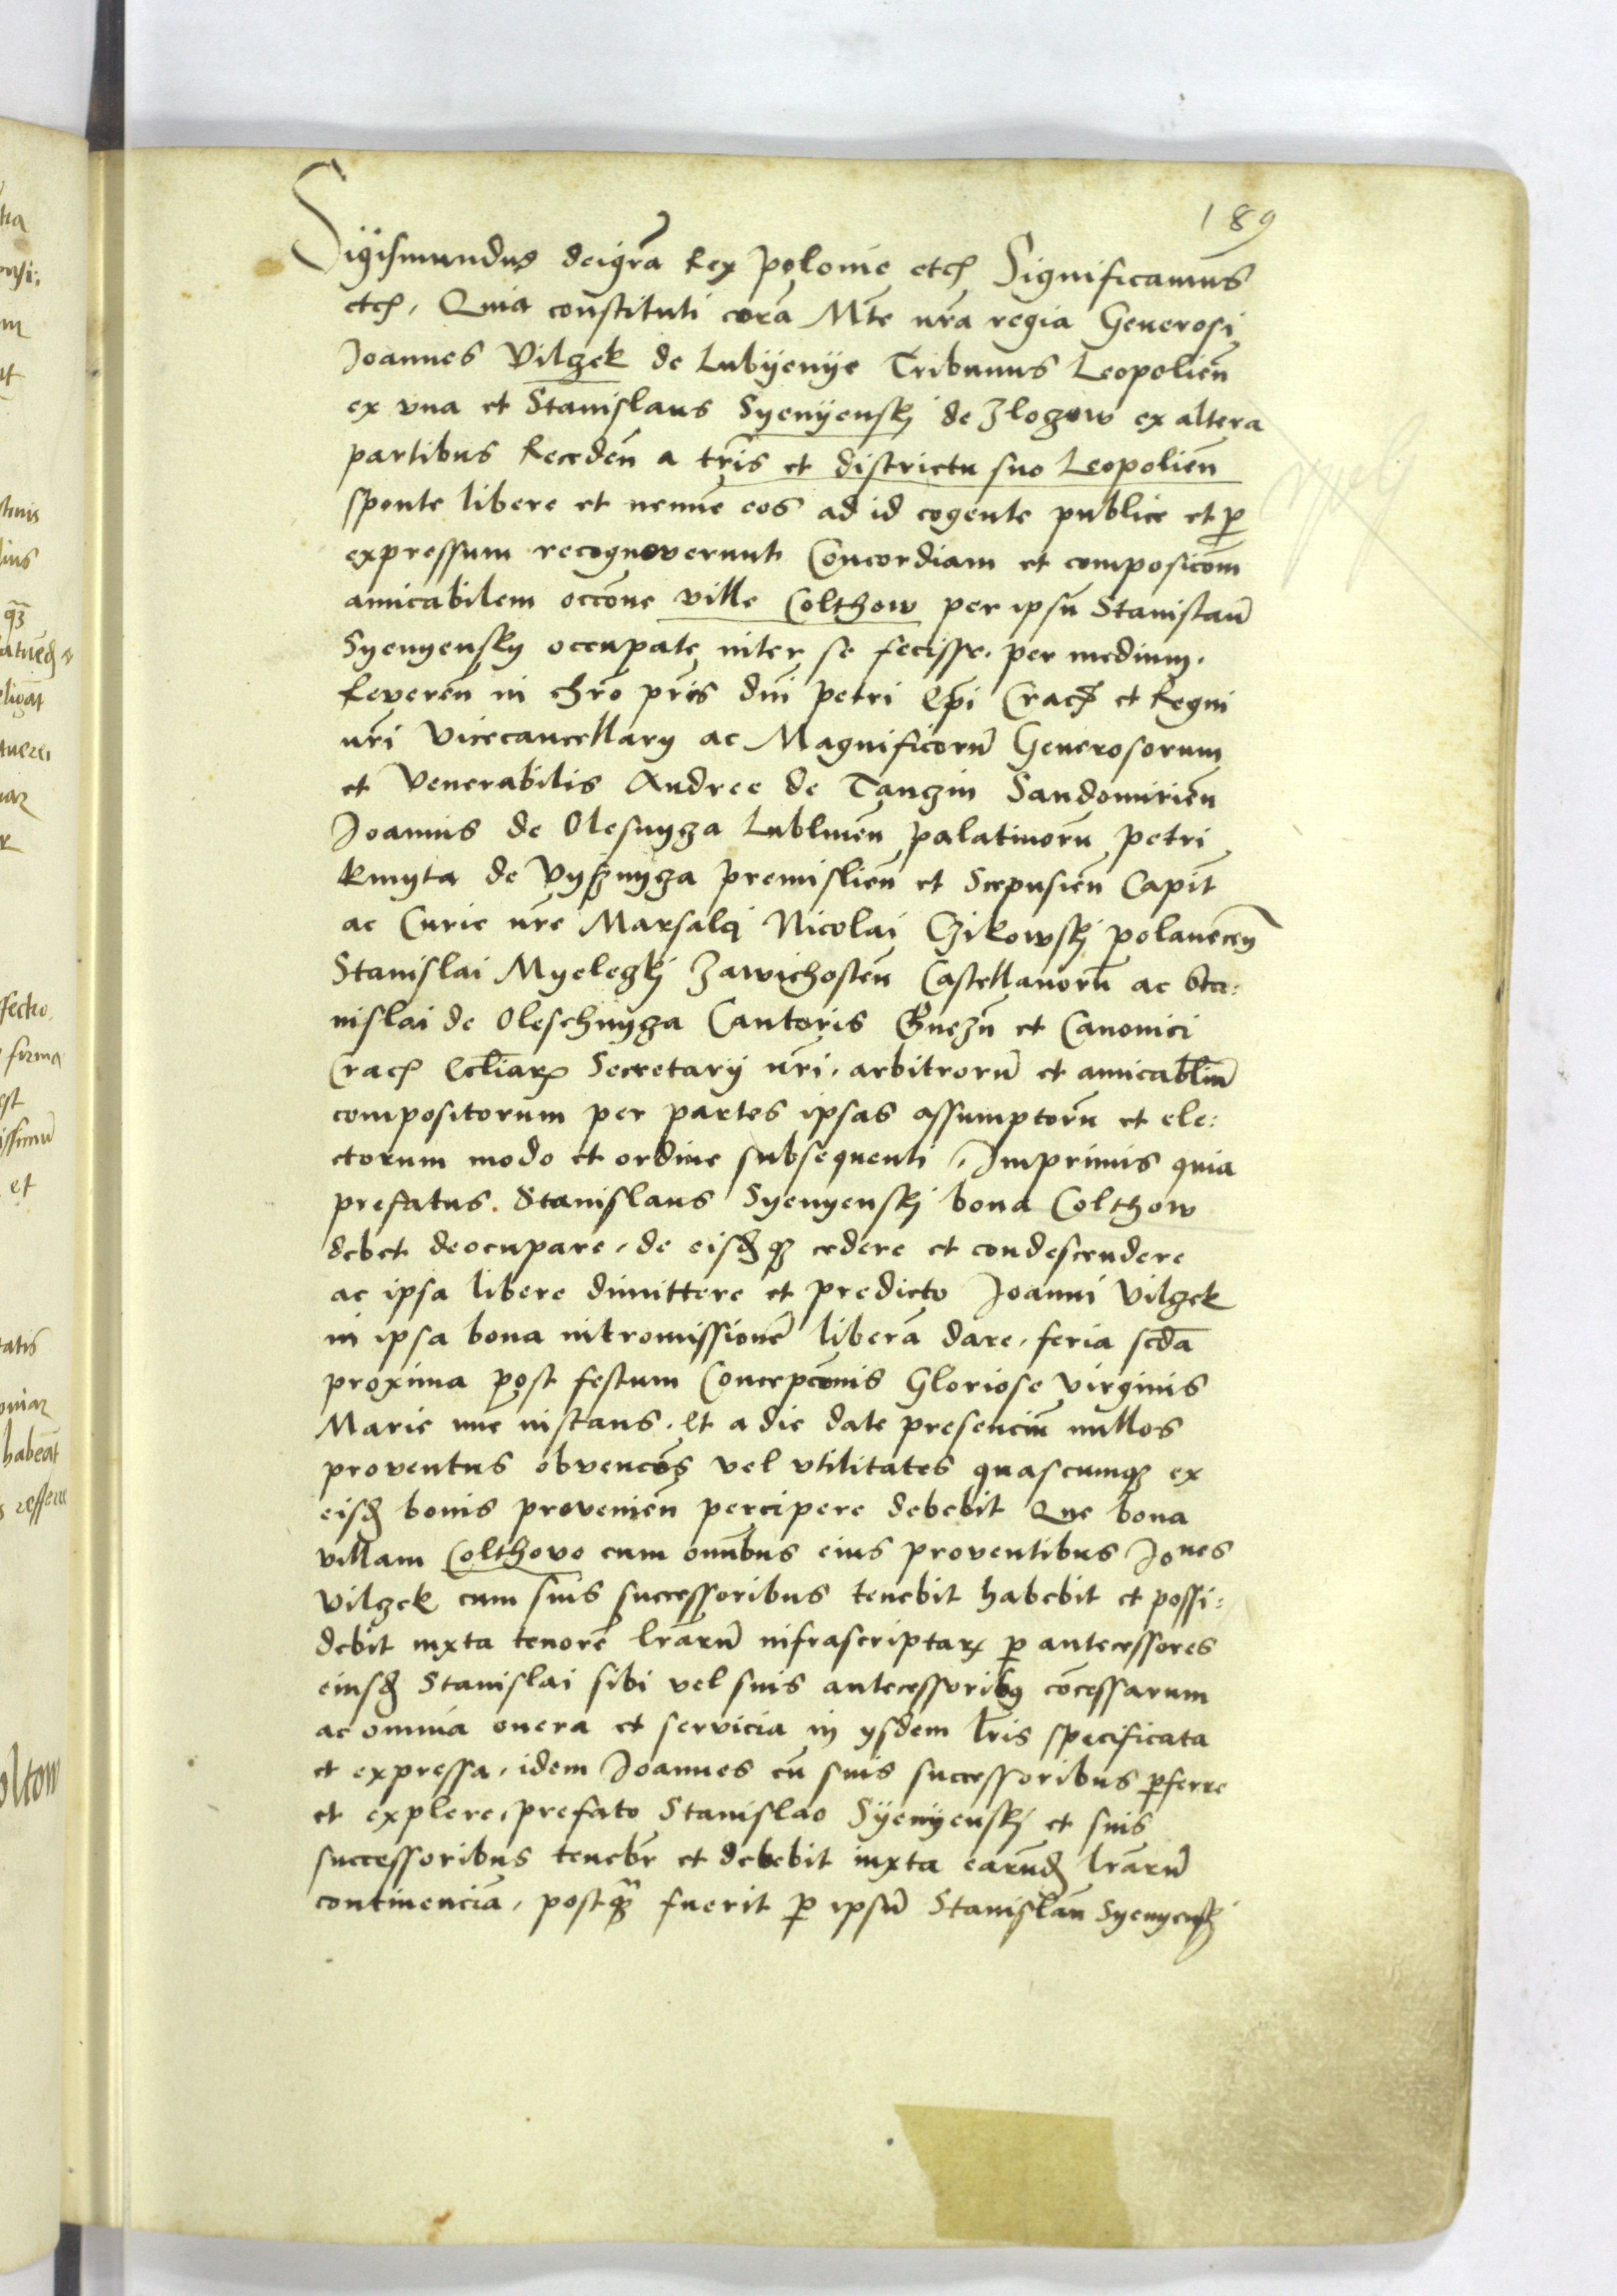 189
Sigismundus deigrã Rex polonie etcʒ Significamus
etcʒ, Quia constituti corã Mte nrã regia Generosi
Joannes Vilgek de Lubÿenÿe Tribunus Leopoliẽn
ex vna et Stanislaus Syenÿenskj de Zlogow ex altera
partibus Recedẽn a trĩs et districtu suo Leopoliẽn
sponte libere et nemĩe eos ad id cogente publice et p̱
expressum recognoverunt Concordiam et composicõm
amicabilem occõne ville Colthow per ipsũ Stanislaũ
Syenyensky occupate inter se fecisse. per medium.
Reverẽn in chrõ prĩs dnĩ petri Epĩ Cracʒ et Regni
nrĩ Vicecancellary ac Magnificorũ Generosorum
et Venerabilis Andree de Tanczin Sandomiriẽn
Joannis de Olesnyga Lublinẽn palatinorũ petri
Kmyta de Vyssnyga premisliẽn et Scepusiẽn Capit̃
ac Curie nrẽ Marsalci Nicolai Czikowskj polanecẽn
Stanislai Myelegkj Zawichostẽn Castellanorũ ac Sta:
nislai de Oleschnyga Cantoris Gnezñ et Canonici
Cracʒ Eccliarꝝ Secretarÿ nrĩ, arbitrorũ et amicabliũ
compositorum per partes ipsas assumptorũ et ele:
ctorum modo et ordine subsequenti, Imprimis quia
prefatus. Stanislaus Syenyenskj bona Colthow
debet deocupare, de eisdꝫ cedere et condescendere
ac ipsa libere dimittere et predicto Joanni Vilgek
in ipsa bona intromissionẽ liberã dare, feria scdã
proxima post festum Concepcõnis Gloriose Virginis
Marie nũc instans. Et a die date presenciũ nullos
proventus obvencões vel vtilitates quascumqꝫ ex
eisdꝫ bonis proveniẽn percipere debebit Que bona
villam Colthovo cum omĩbus eius proventibus Joñes
Vilgek cum suis successoribus tenebit habebit et possi:
debit iuxta tenorẽ lrãrũ infrascriptarꝝ p̱ antecessores
eiusdꝫ Stanislai sibi vel suis antecessoribꝫ cõcessarum
ac omnia onera et servicia in ysdem lrĩs specificata
et expressa, idem Joannes cũ suis successoribus p̱ferre
et explere, prefato Stanislao Syenyenskj et suis
successoribus tenebr̃ et debebit iuxta earũdꝫ lrãrũ
continenciã, postqꝫ fuerit p̱ ipsũ Stanislaũ Syenyenskj